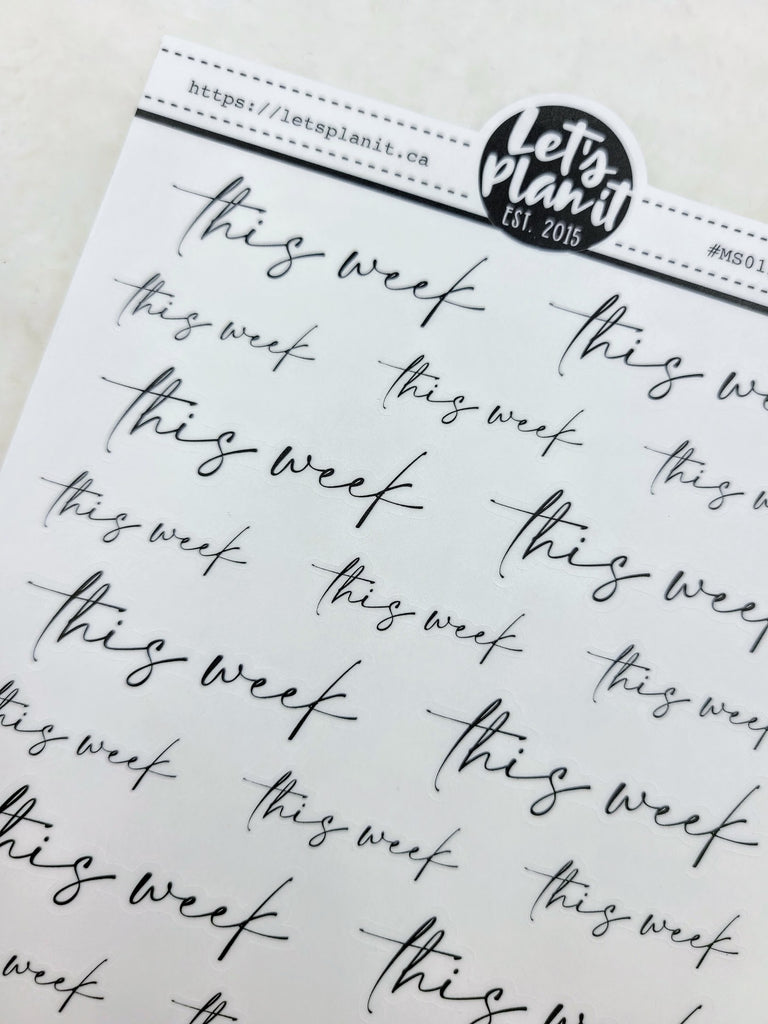 https://letsplanit.ca
Let's
plan it
EST. 2015
#MS01
this week
this
this week this week this
this week this week
this week this week this week
this week this week
this week this week this week
this week this
week